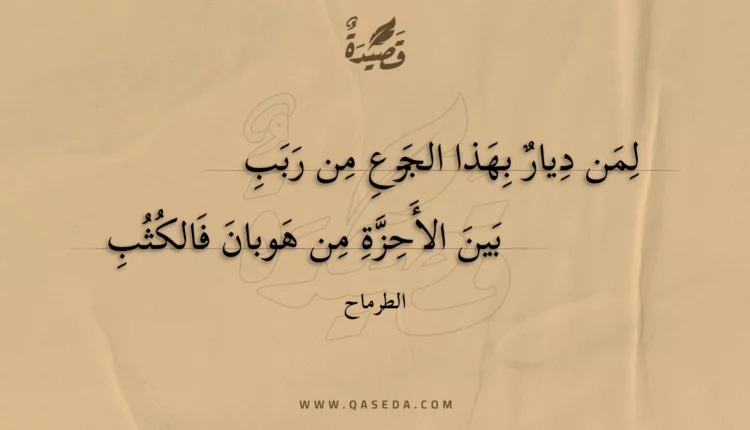 قَصِيْدَةٌ
لِمَن دِيارٌ بِهَذا الجَزعِ مِن رَبَبِ
بَينَ الأَحِزَّةِ مِن هَوبانَ فَالكُثُبِ
الطرماح
WWW.QASEDA.COM